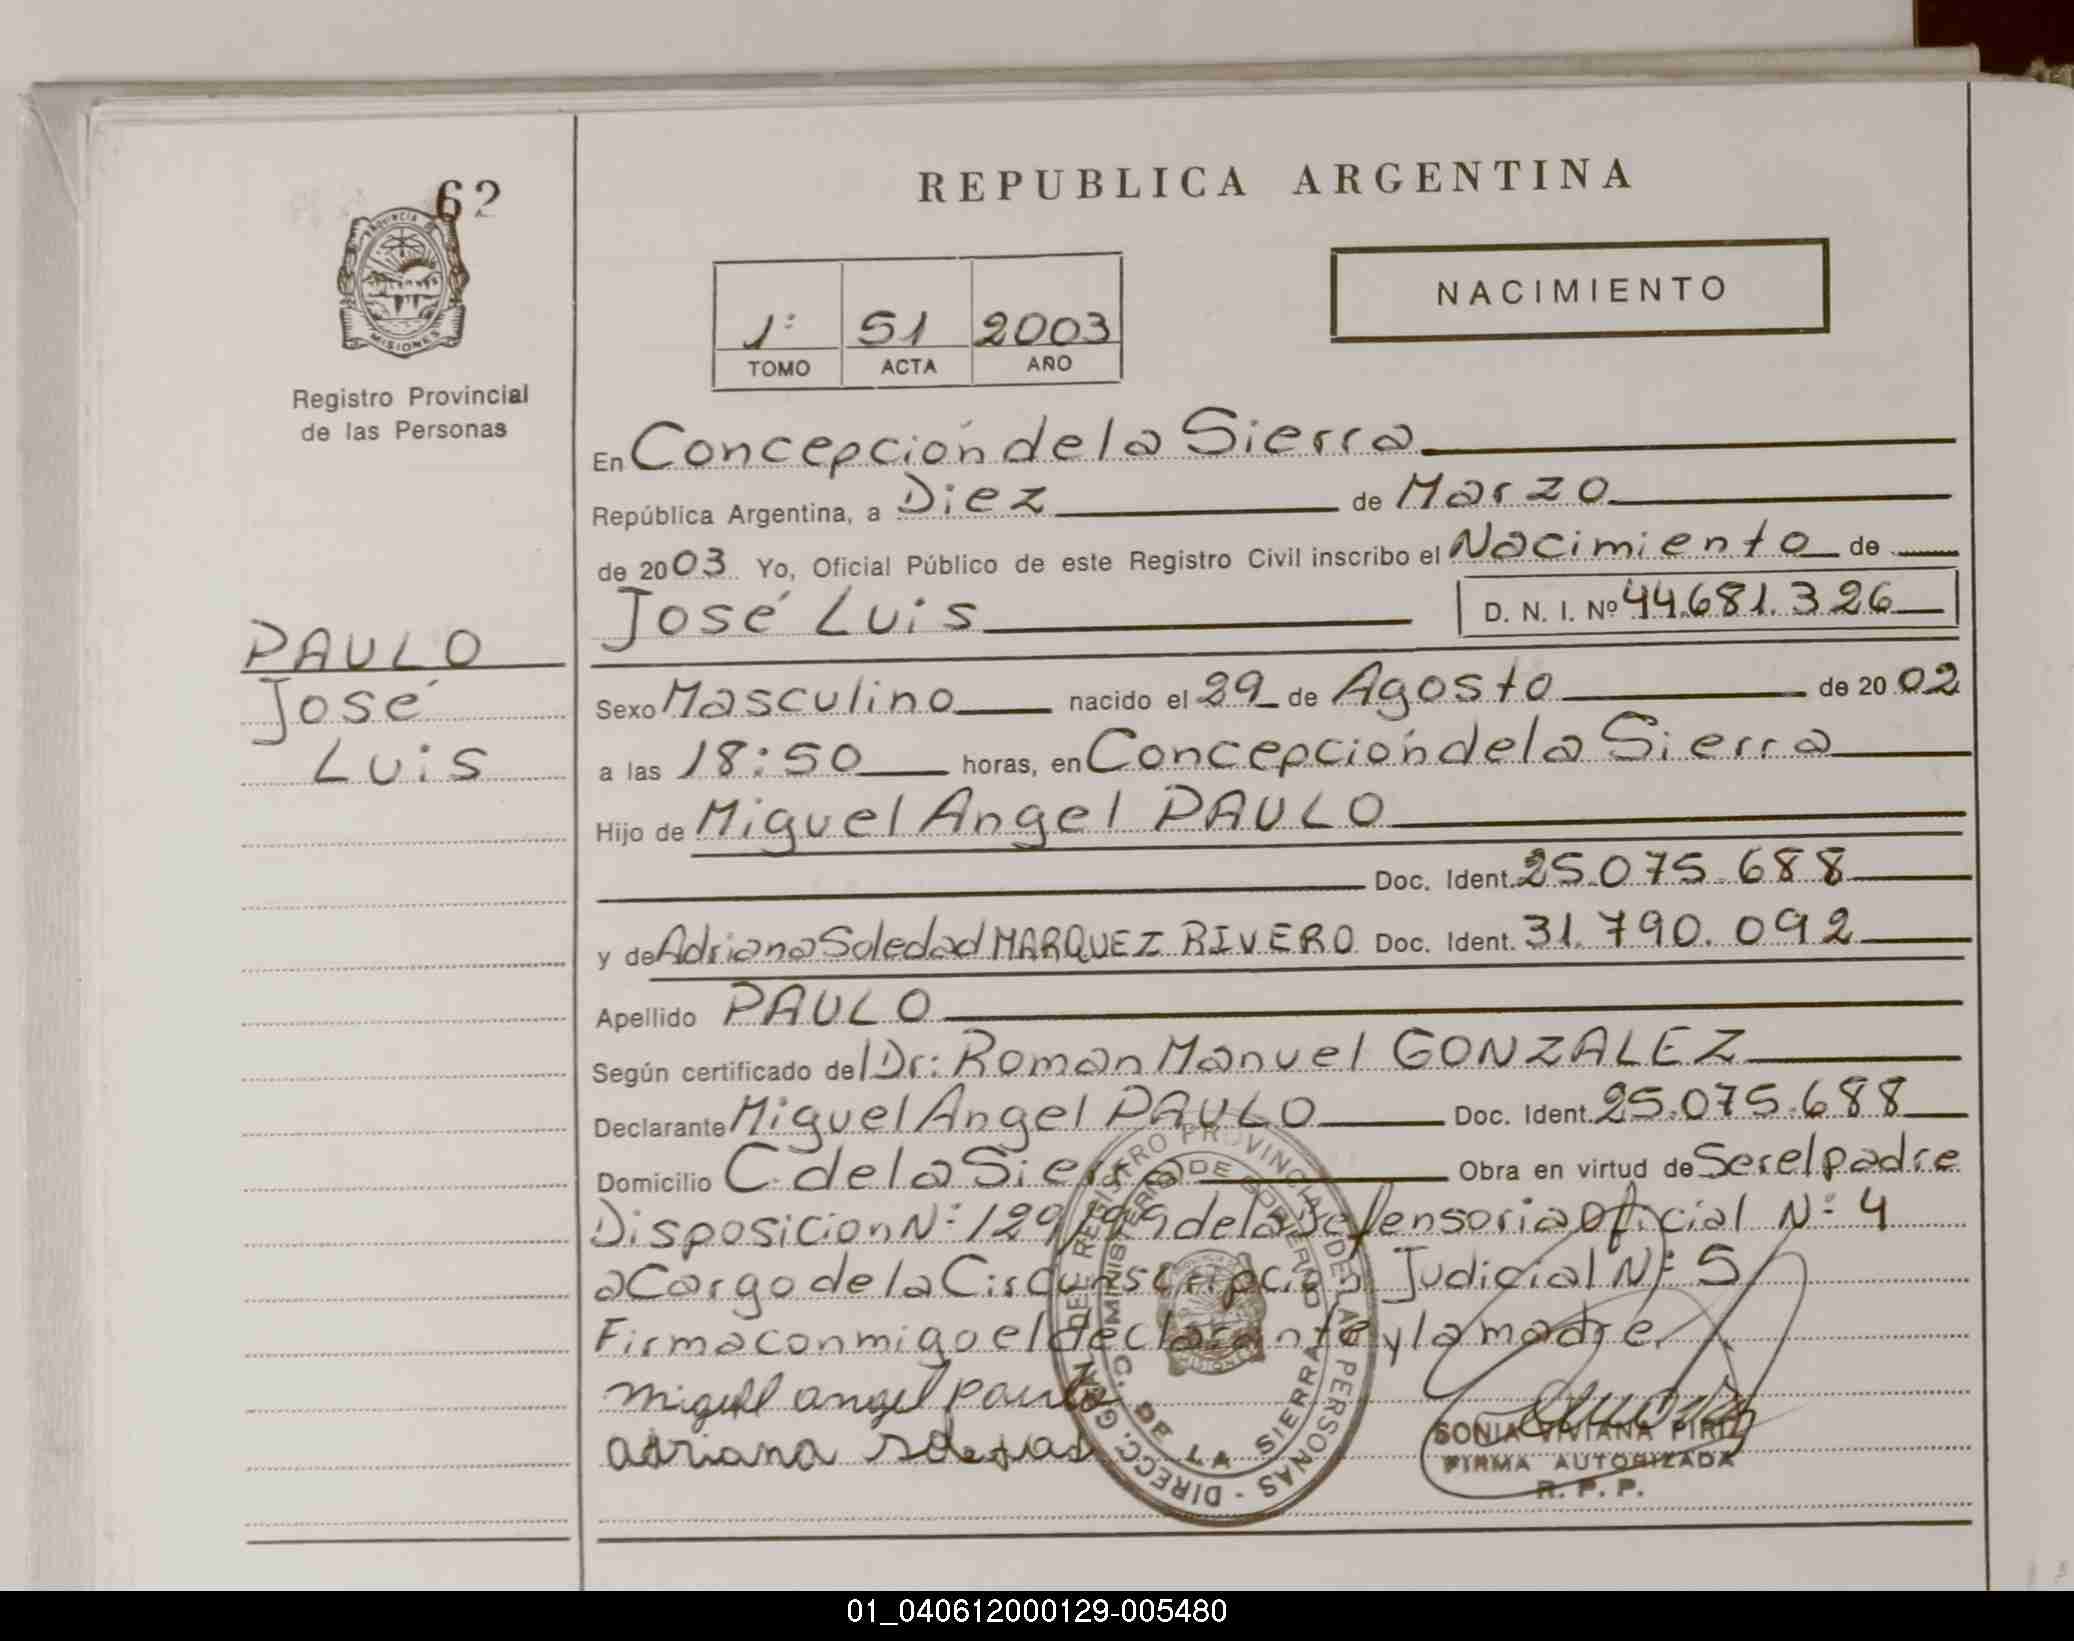 62
PROVINCIA DE
MISIONES
Registro Provincial
de las Personas
PAULO
José
Luis
REPUBLICA ARGENTINA
1º 51 2003
TOMO ACTA AÑO
NACIMIENTO
En Concepción de la Sierra
República Argentina, a Diez de Marzo
de 2003 Yo, Oficial Público de este Registro Civil inscribo el Nacimiento de
José Luis D. N. I. Nº 44.681.326
Sexo Masculino nacido el 29 de Agosto de 2002
a las 18:50 horas, en Concepción de la Sierra
Hijo de Miguel Angel PAULO
Doc. Ident. 25.075.688
y de Adriana Soledad MARQUEZ RIVERO Doc. Ident. 31.790.092
Apellido PAULO
Según certificado del Dr: Roman Manuel GONZALEZ
Declarante Miguel Angel PAULO Doc. Ident. 25.075.688
Domicilio C. de la Sierra Obra en virtud de Ser el padre
Disposicion Nº 129/99 de la Defensoria Oficial Nº 4
a Cargo de la Circunscripcion Judicial Nº 5
Firma conmigo el declarante y la madre.
miguel angel paulo
adriana soledad
DIRECC. GRAL. DEL REGISTRO PROVINCIAL DE LAS PERSONAS
MINISTERIO DE GOBIERNO
C. DE LA SIERRA
SONIA VIVIANA PIRIZ
FIRMA AUTORIZADA
R. P. P.
01_040612000129-005480